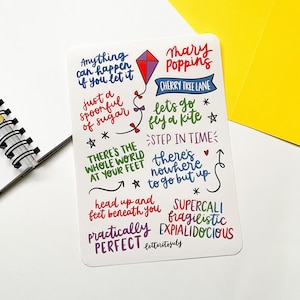 Anything
can happen
if you let it
Mary
Poppins
CHERRY TREE LANE
just a
spoonful
of sugar
let's go
fly a kite
STEP IN TIME
THERE'S THE
WHOLE WORLD
AT YOUR FEET
there's
nowhere
to go but up
head up and
feet beneath you
SUPERCALI
fragilistic
EXPIALIDOCIOUS
practically
PERFECT